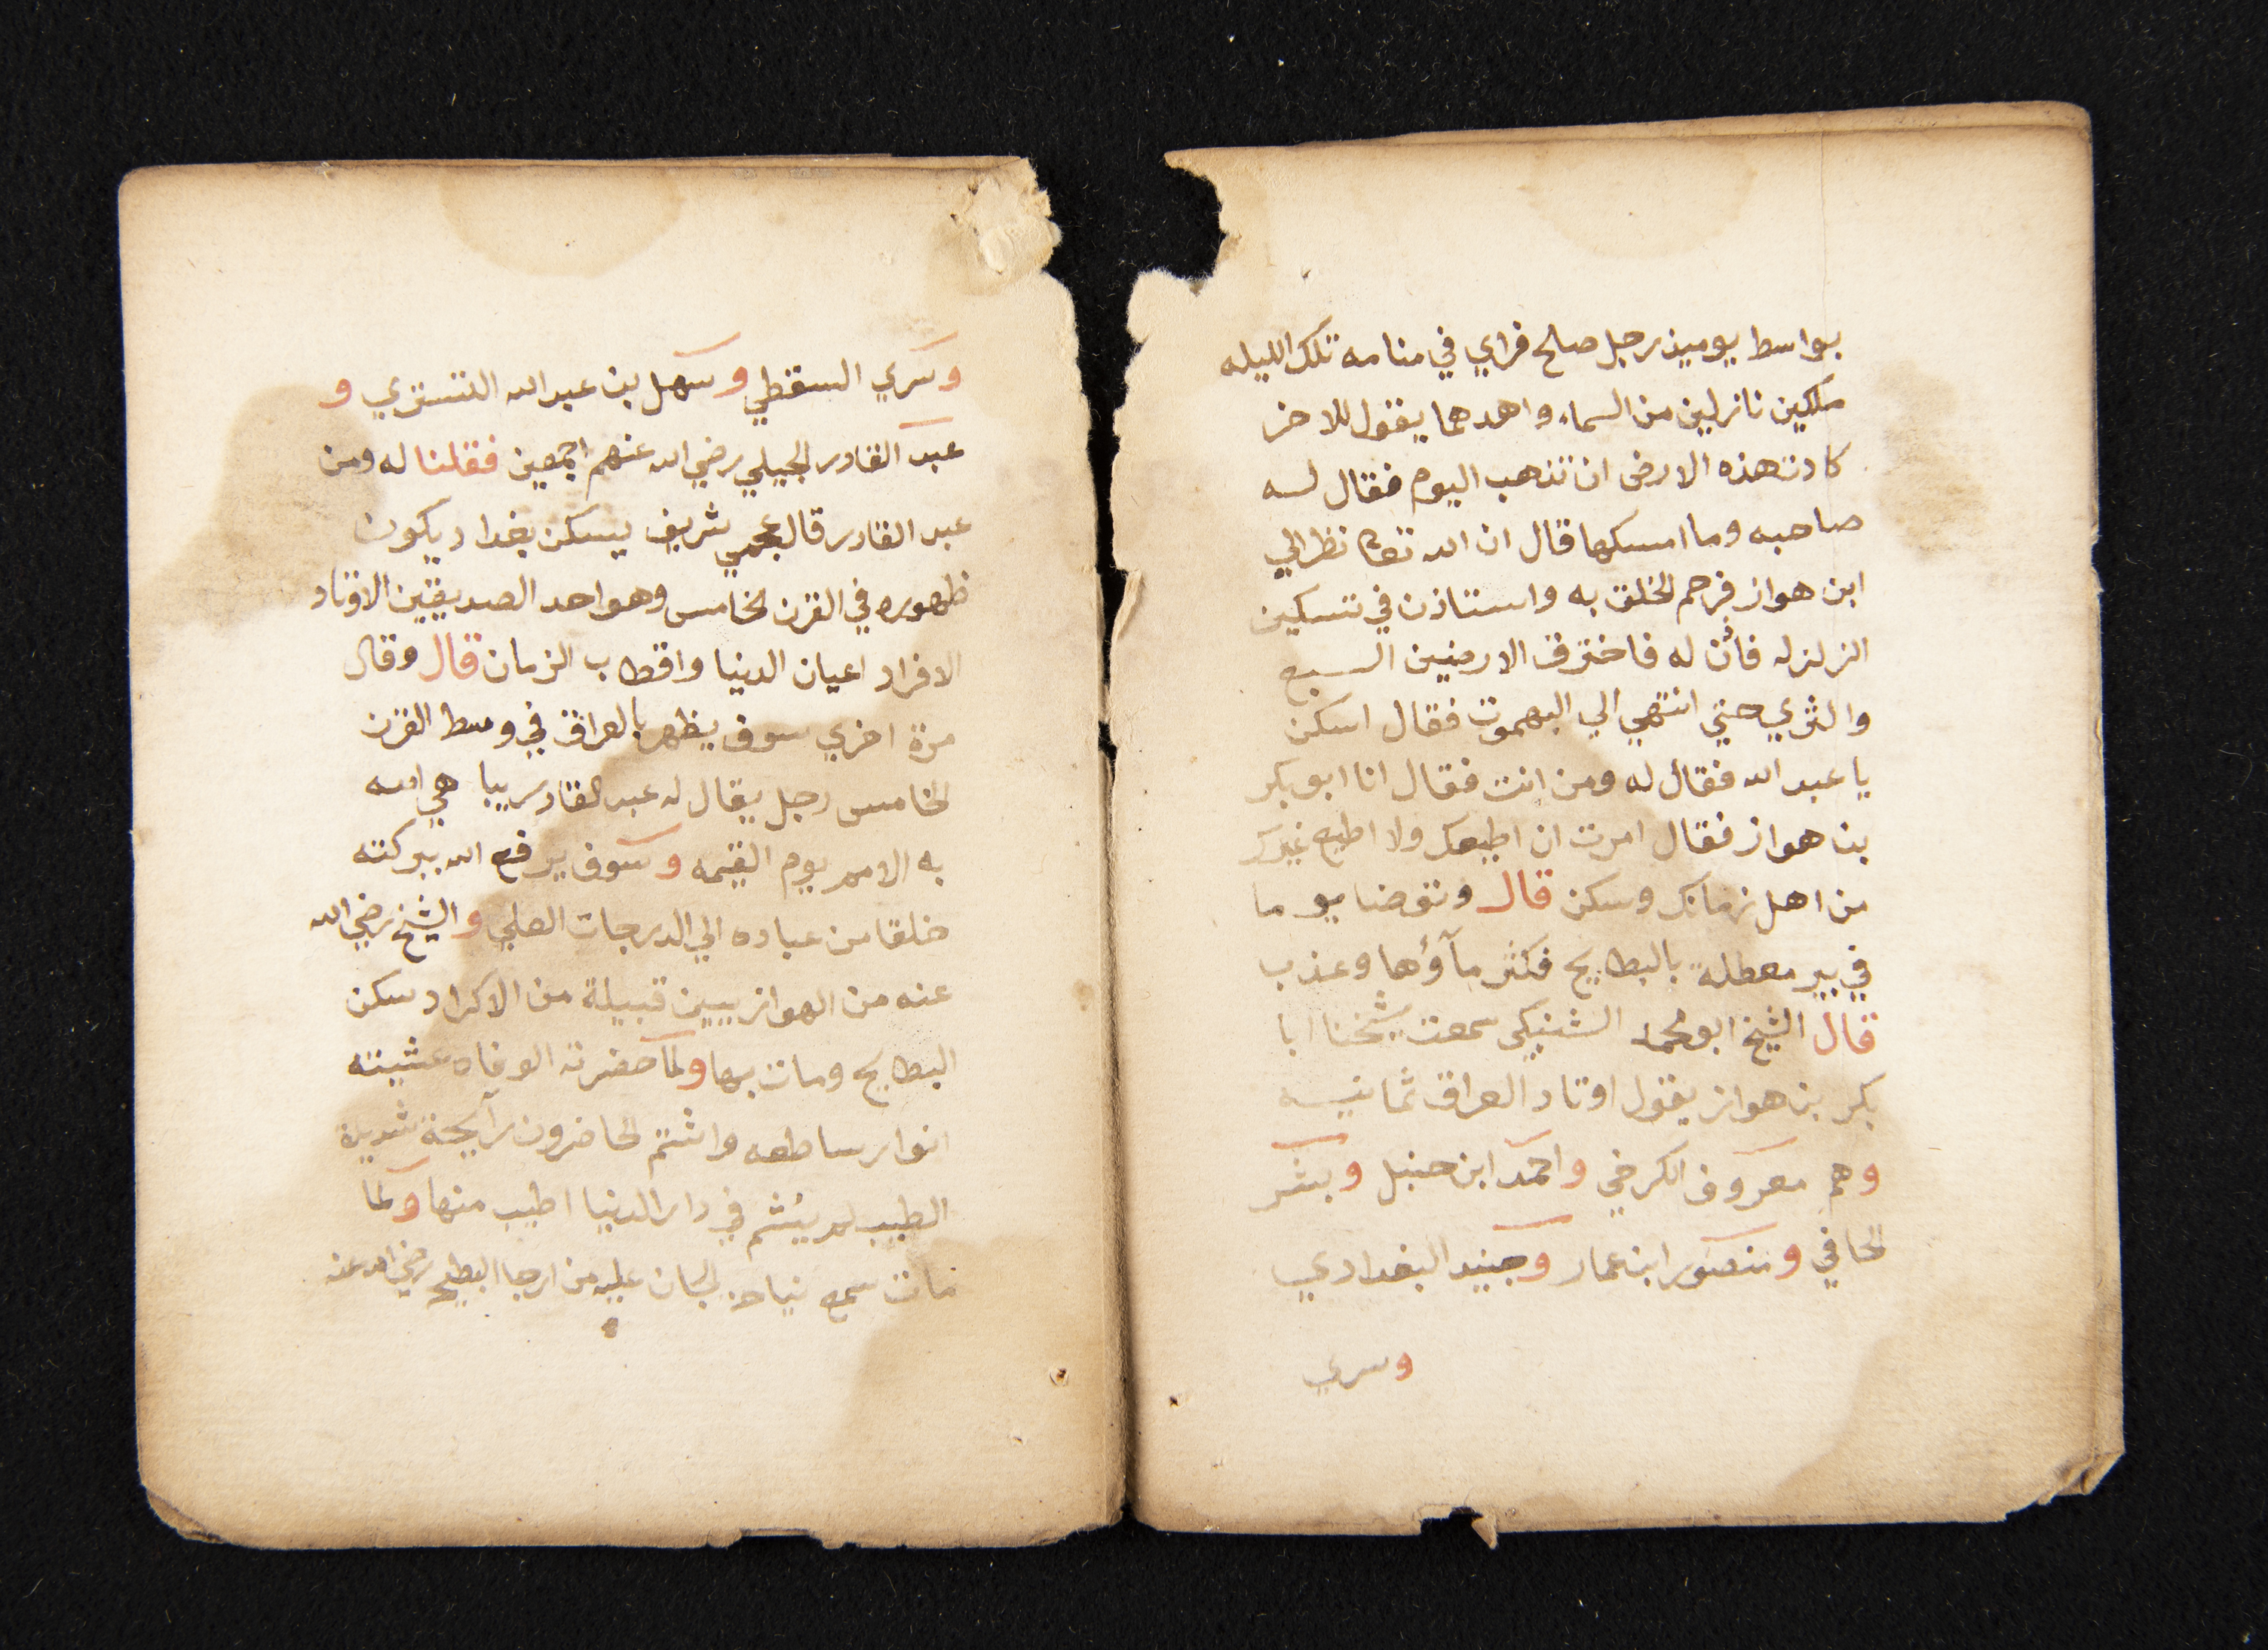 بواسط يوميذ رجل صلح فراي في منامه تلك الليله
ملكين نازلين من السماء واحدهما يقول للاخر
كادت هذه الارض ان تذهب اليوم فقال له
صاحبه وما امسكها قال ان الله تعالى نظر الي
ابن هواز فرحم الخلق به واستاذن في تسكين
الزلزله فاذن له فاخترق الارضين السبع
والثري حتي انتهي الي البهموت فقال اسكن
يا عبد الله فقال له ومن انت فقال انا ابو بكر
بن هواز فقال امرت ان اطيعك ولا اطيع غيرك
من اهل زمانك وسكن قال وتوضا يوما
في بير معطلة بالبطايح فكثر مآؤها وعذب
قال الشيخ ابو محمد الشنبكي سمعت شيخنا ابا
بكر بن هواز يقول اوتاد العراق ثمانيه
وهم معروف الكرخي واحمد ابن حنبل وبشر
الحافي ومنصور ابن عمار وجنيد البغدادي
وسري
وسري السقطي وسهل بن عبد الله التستري و
عبد القادر الجيلي رضي الله عنهم اجمعين فقلنا له ومن
عبد القادر قال عجمي شريف يسكن بغداد يكون
ظهوره في القرن الخامس وهو احد الصديقين الاوتاد
الافراد اعيان الدنيا واقطاب الزمان قال وقال
مرة اخري سوف يظهر بالعراق في وسط القرن
الخامس رجل يقال له عبد القادر يباهي الله
به الامم يوم القيمه وسوف يرفع الله ببركته
خلقا من عباده الي الدرجات العلي والشيخ رضي الله
عنه من الهوازيين قبيلة من الاكراد سكن
البطايح ومات بها ولما حضرته الوفاه غشيته
انوار ساطعه واشتم الحاضرون رآيحة شديدة
الطيب لم يُشم في دار الدنيا اطيب منها ولما
مات سمع نياح الجان عليه من ارجا البطيح رضي الله عنه